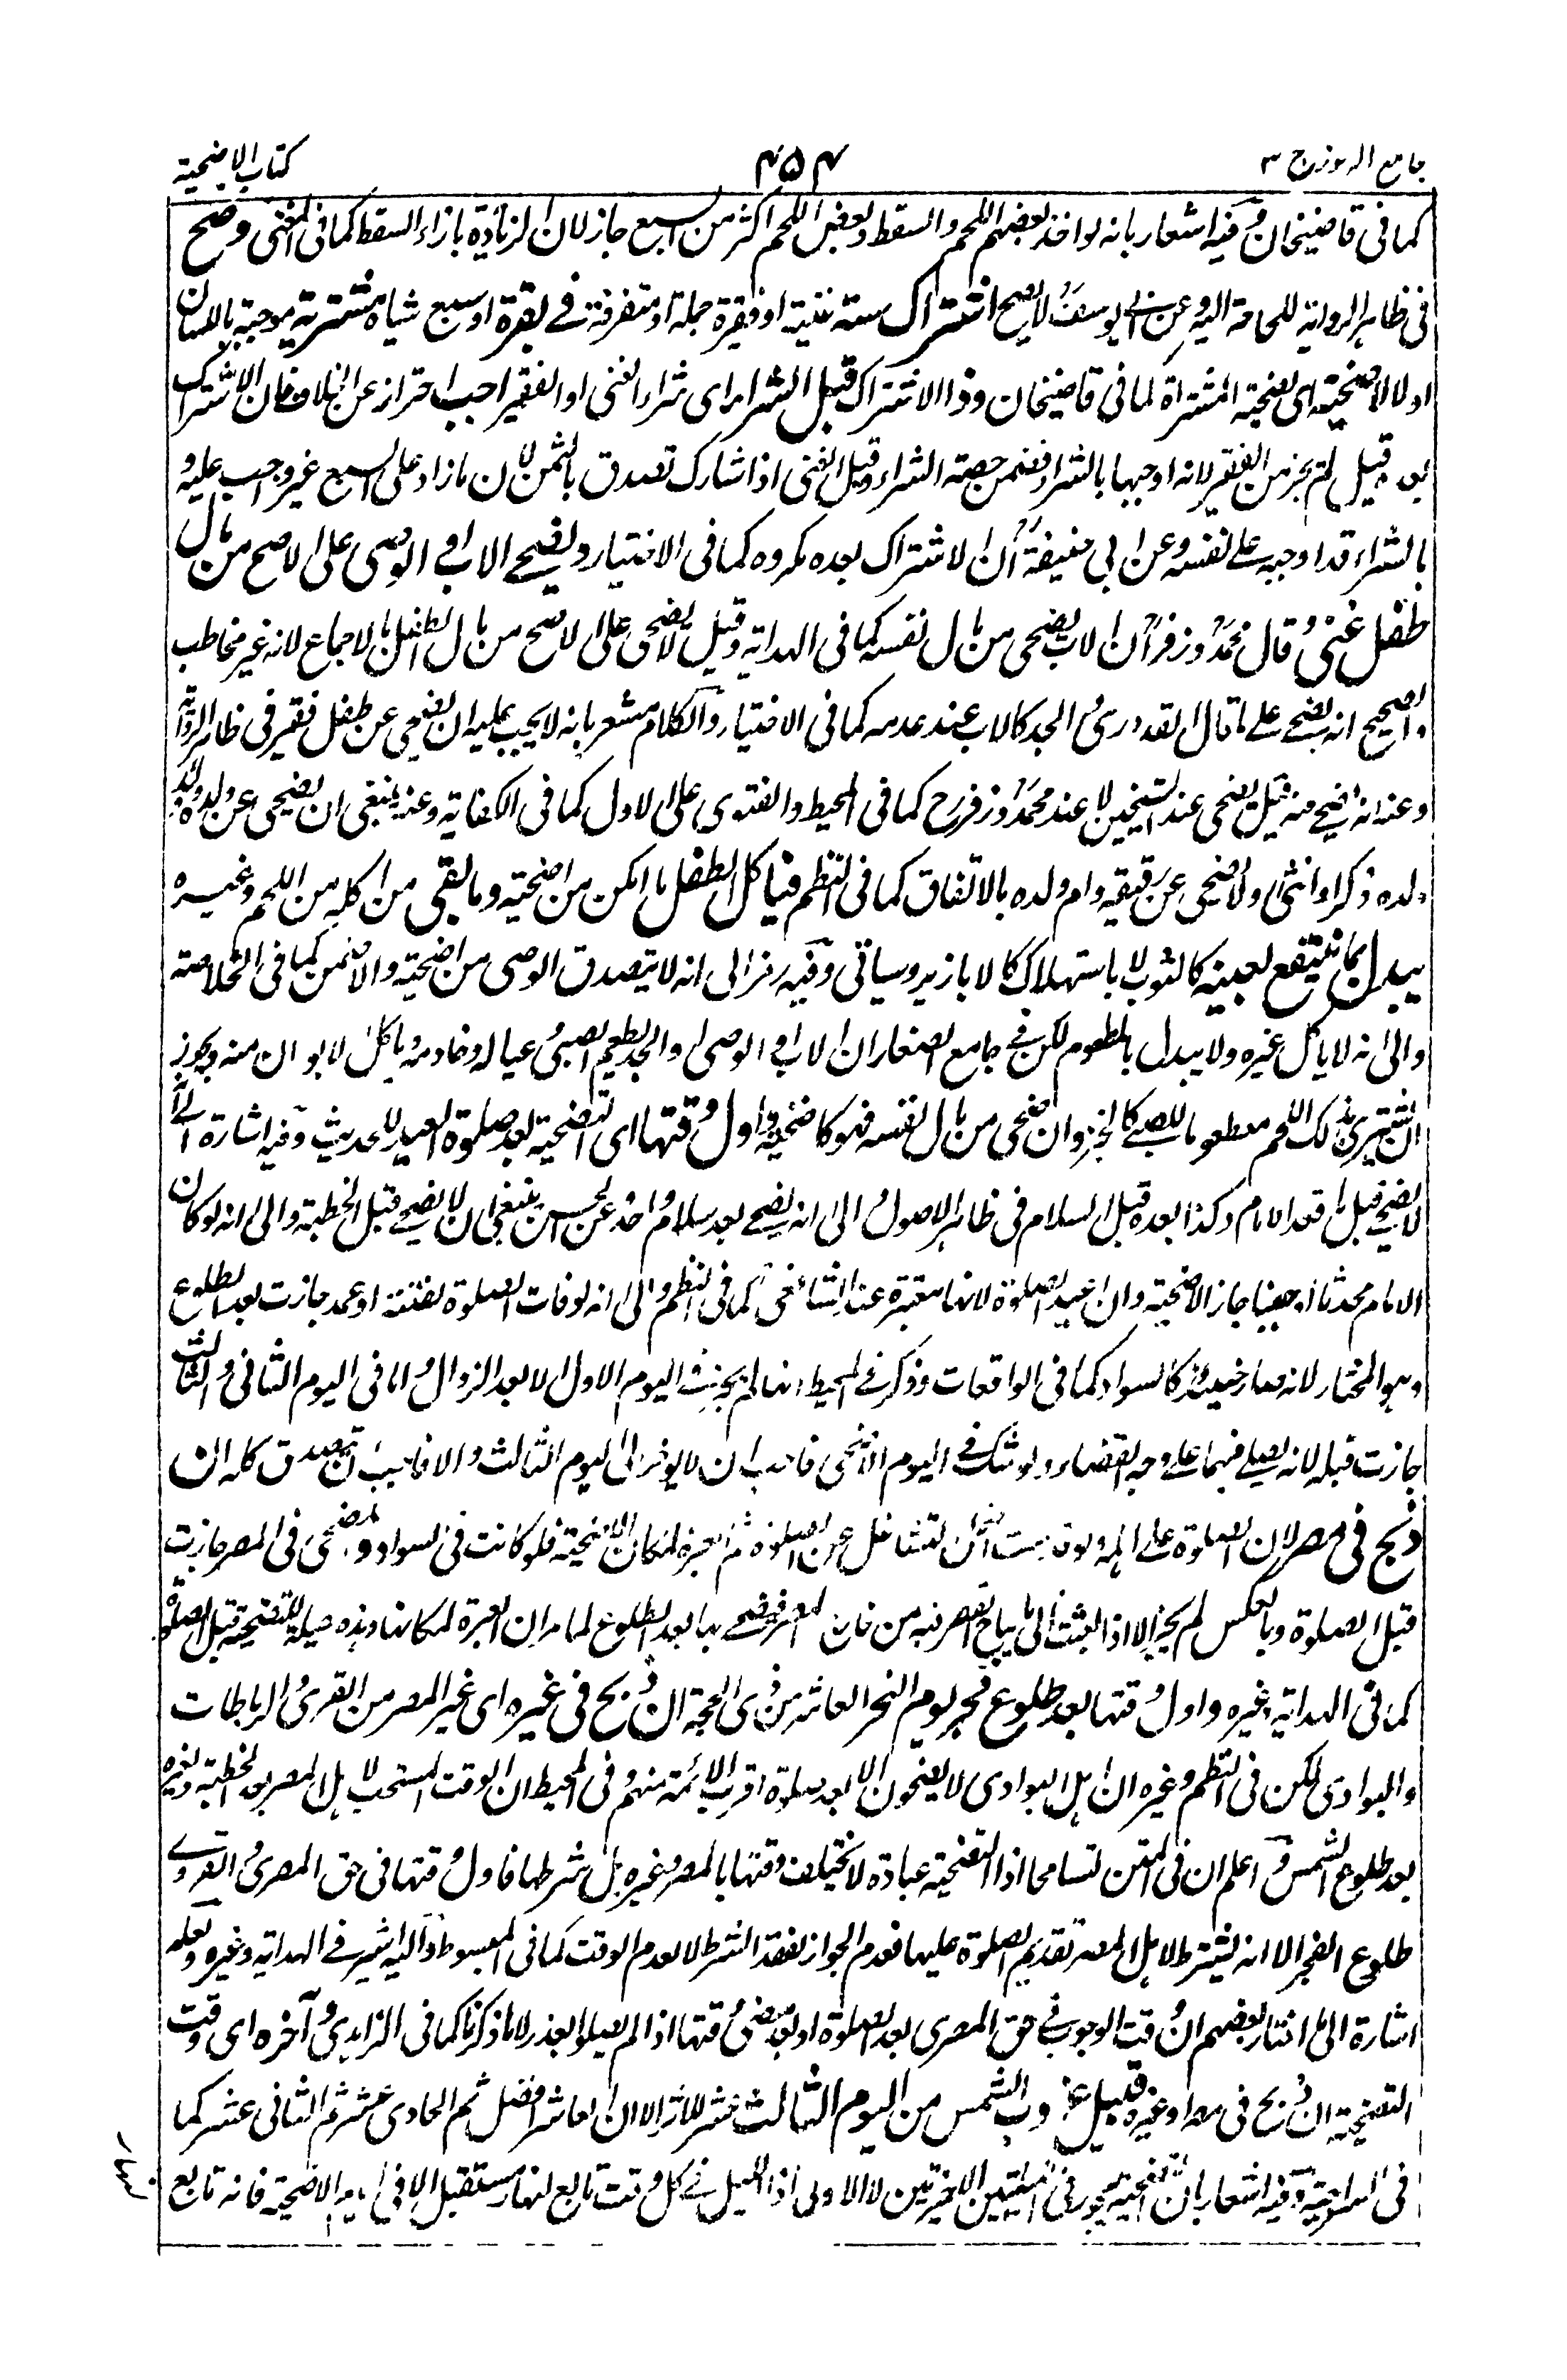 جامع الرموز ج ٣
٤٥٤
كتاب الاضحية
كما فى قاضيخان وفيه اشعار بانه لو اخذ بعضهم اللحم والسقط وبعض اللحم اكثر من السبع جاز لان الزيادة بازاء السقط كما فى المغنى وصح
فى ظاهر الرواية للحاجة اليه وعن ابى يوسف لا يصح اشتراك ستة غنية او فقيرة جملة او متفرقة فى بقرة او سبع شياه مشترية موجبة باللسان
اولا للاضحية اى لضحية المشتراة كما فى قاضيخان وذا الاشتراك قبل الشراء اى شراء الغنى او الفقير احب احترازا عن الخلاف فان الاشتراك
بعده قيل لم يجز من الفقير لانه اوجبها بالشراء فضمن حصة الشراء وقيل الغنى اذا شارك تصدق بالثمن لان ما زاد على السبع غير واجب عليه و
بالشراء قد اوجبه على نفسه وعن ابى حنيفة ان الاشتراك بعده مكروه كما فى الاختيار ويضحى الاب و الوصى على الاصح من مال
طفل غنى و قال محمد وزفر ان الاب يضحى من مال نفسه كما فى الهداية وقيل لا يضحى على الاصح من مال الطفل بالاجماع لانه غير مخاطب
والصحيح انه يضحى على ما قال القدورى والجد كالاب عند عدمه كما فى الاختيار والكلام مشعر بانه لا يجب عليه ان يضحى عن طفل فقير فى ظاهر الرواية
وعنه انه يضحى عنه قيل يضحى عند الشيخين لا عند محمد وزفر رح كما فى المحيط والفتوى على الاول كما فى الكفاية وعنه ينبغى ان يضحى عن ولده وولد
ولده ذكرا او انثى ولا يضحى عن رقيقه وام ولده بالاتفاق كما فى النظم فياكل الطفل ما امكن من اضحيته وما بقى من اكله من اللحم وغيره
يبدل بما ينتفع بعينه كالثوب لا باستهلاك كالابازير وسياتى وفيه رمز الى انه لا يتصدق الوصى من اضحيته والا ضمن كما فى الخلاصة
والى انه لا ياكل غيره ولا يبدل بالمطعوم لكن فى جامع الصغار ان الاب و الوصى والجد يطعم الصبى وعياله وخادمه وياكل الابوان منه ويجوز
ان يشترى بذلك اللحم مطعوما للصبى كالخبز وان ضحى من مال نفسه فهو كاضحيته واول وقتها اى التضحية بعد صلوة العيد للحديث وفيه اشارة الى
لا يضحى قبل ما قعد الامام وكذا بعده قبل السلام فى ظاهر الاصول والى انه يضحى بعد سلام واحد وعن الحسن ينبغى ان لا يضحى قبل الخطبة والى انه لو كان
الامام محدثا او جنبا جاز الاضحية وان اعيد الصلوة لانها معتبرة عند الشافعى كما فى النظم والى انه لو فات الصلوة لفتنة او عمد جازت بعد الطلوع
وهو المختار لانه صار حينئذ كالسواد كما فى الواقعات وذكر فى المحيط انها لم يجز فى اليوم الاول الا بعد الزوال واما فى اليوم الثانى والثالث
جازت قبله لانه يصلى فيهما على وجه القضاء ولو شك فى اليوم الاضحى فاحب ان لا يوخر الى اليوم الثالث والا فاحب ان يتصدق كله ان
ذبح فى مصر لان الصلوة على اهله وبه يثبت ان التشاغل عن الصلوة ثم العبرة لمكان الاضحية فلو كانت فى السواد والمضحى فى المصر جازت
قبل الصلوة وبالعكس لم يجز الا اذا بعث الى ما يباح القصر فيه من خارج المصر فيضحى بها بعد الطلوع لما مر ان العبرة لمكانها وهذه حيلة للتضحية قبل الصلوة
كما فى الهداية وغيره واول وقتها بعد طلوع فجر يوم النحر العاشر من ذى الحجة ان ذبح فى غيره اى غير المصر من القرى و الرباطات
والبوادى لكن فى النظم وغيره ان اهل البوادى لا يضحون الا بعد صلوة اقرب الائمة منهم وفى المحيط ان الوقت المستحب لاهل المصر بعد الخطبة ولغيره
بعد طلوع الشمس و اعلم ان فى المتن تسامحا اذ التضحية عبادة لا تختلف وقتها بالمصر وغيره بل شرطها فاول وقتها فى حق المصرى و القروى
طلوع الفجر الا انه يشترط لاهل المصر تقديم الصلوة عليها فعدم الجواز لفقد الشرط لا لعدم الوقت كما فى المبسوط واليه اشير فى الهداية وغيره ولعله
اشارة الى ما اختار بعضهم ان وقت الوجوب فى حق المصرى بعد الصلوة او بعد مضى وقتها اذا لم يصلوا بعذر لما ذكرنا كما فى الزاهدى و آخره اى وقت
التضحية ان ذبح فى مصر او غيره قبيل غروب الشمس من اليوم الثالث عشر للاثر الا ان العاشر افضل ثم الحادى عشر ثم الثانى عشر كما
فى السراجية وفيه اشعار بان التضحية يجوز فى الليلتين الاخيرتين لا الاولى اذ الليل فى كل وقت تابع لنهار مستقبل الا فى ايام الاضحية فانه تابع